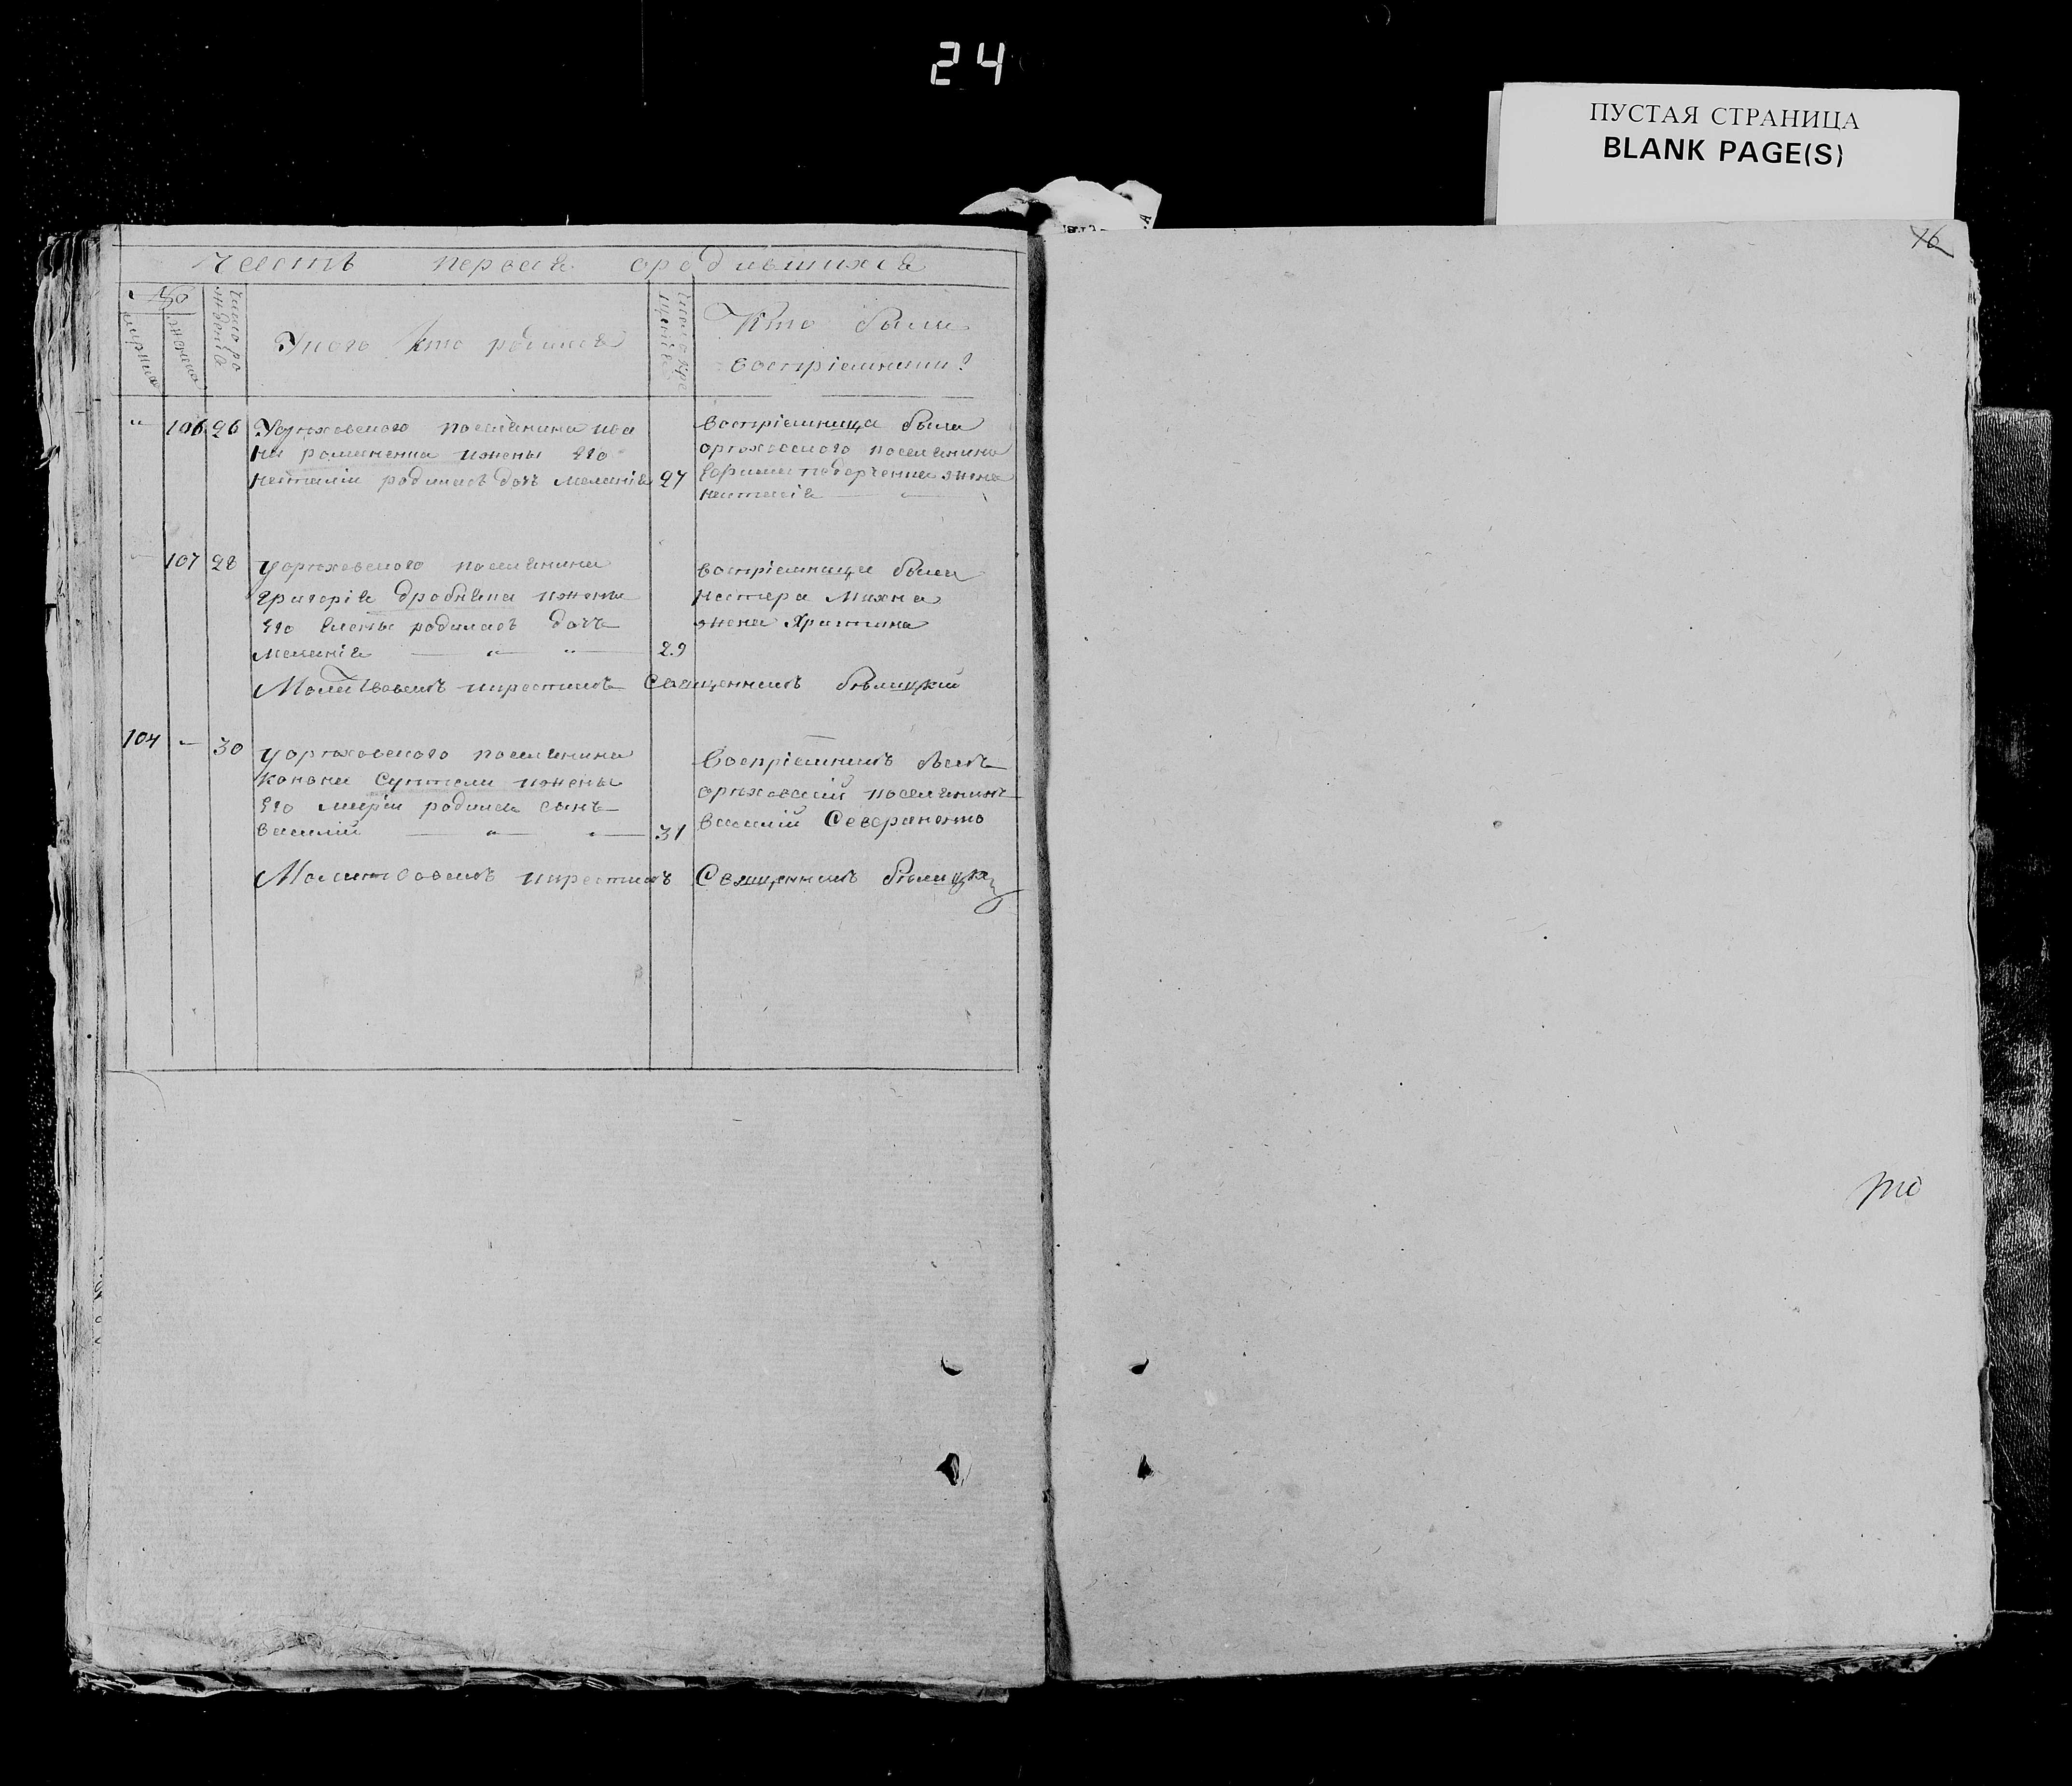 24
ПУСТАЯ СТРАНИЦА
BLANK PAGE(S)
16
Часть первая ородившихся
№
мужска
женска
Число рождения
Укого кто родился
Число крещенія
Кто были
воспріемники?
" 106 26 Уорѣховского поселянина ива
на романенка ижены его
наталіи родилась дочь меланія 27
воспріемница была
орѣховского поселянина
жена
настасія
107 28 уорѣховского поселянина
григорія дробязка ижены
его елены родилась дочь
меланія " " 29
воспріемница была
нестера Махна
жена Христина
Молитвовалъ икрестилъ Священникъ бѣлицкій
104 " 30 уорѣховского поселянина
конона Суптели ижены
его маріи родился сынъ
василій " " 31
Воспріемникъ былъ
орѣховскій поселянинъ
василій Северинено
Молитвовалъ икрестилъ Священникъ бѣлицкій